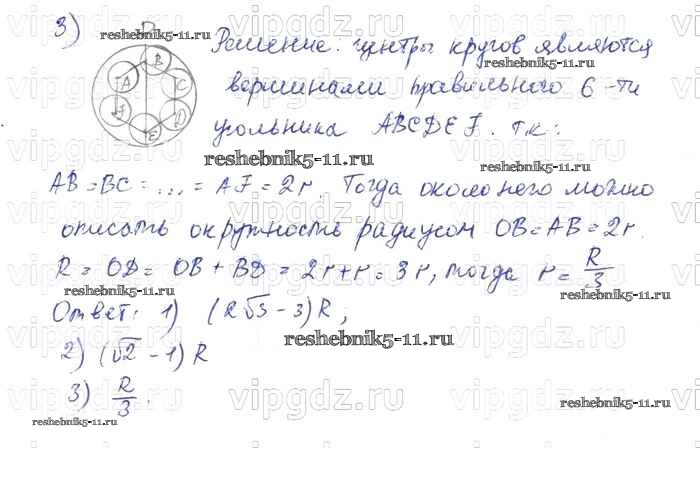 3)
D
A
B
C
D
E
F
Решение: центры кругов являются
вершинами правильного 6-ти
угольника ABCDEF. т.к:
AB = BC = ... = AF = 2r. Тогда около него можно
описать окружность радиусом OB = AB = 2r.
R = OD = OB + BD = 2r + r = 3r, тогда r = R/3
Ответ: 1) (2√3 - 3)R,
2) (√2 - 1)R
3) R/3.
reshebnik5-11.ru
reshebnik5-11.ru
reshebnik5-11.ru
reshebnik5-11.ru
reshebnik5-11.ru
reshebnik5-11.ru
reshebnik5-11.ru
reshebnik5-11.ru
vipgdz.ru
vipgdz.ru
vipgdz.ru